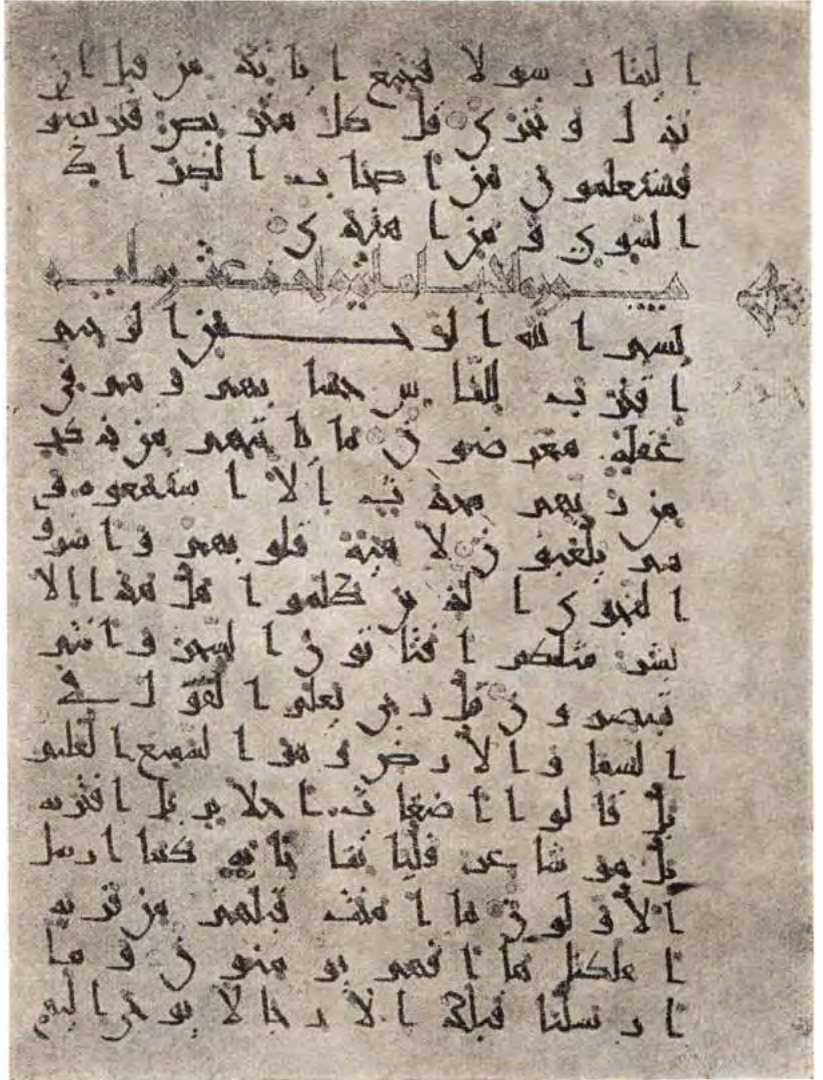 الينا رسولا فنتبع ايتك من قبل ان
نذل و نخزى قل كل متربص فتربصو
فستعلمون من اصحاب الصراط
السوى و من اهتدى
الانبيا
بسم الله الرحمن الرحيم
اقترب للناس حسابهم و هم فى
غفلة معرضون ما ياتيهم من ذكر
من ربهم محدث الا استمعوه و
هم يلعبون لاهية قلوبهم و اسروا
النجوى الذين ظلموا هل هذا الا
بشر مثلكم افتاتون السحر و انتم
تبصرون قل ربى يعلم القول فى
السما و الارض و هو السميع العليم
بل قالوا اضغاث احلام بل افتريه
بل هو شاعر فلياتنا باية كما ارسل
الاولون ما امنت قبلهم من قرية
اهلكنها افهم يومنون و ما
ارسلنا قبلك الا رجالا يوحى اليهم